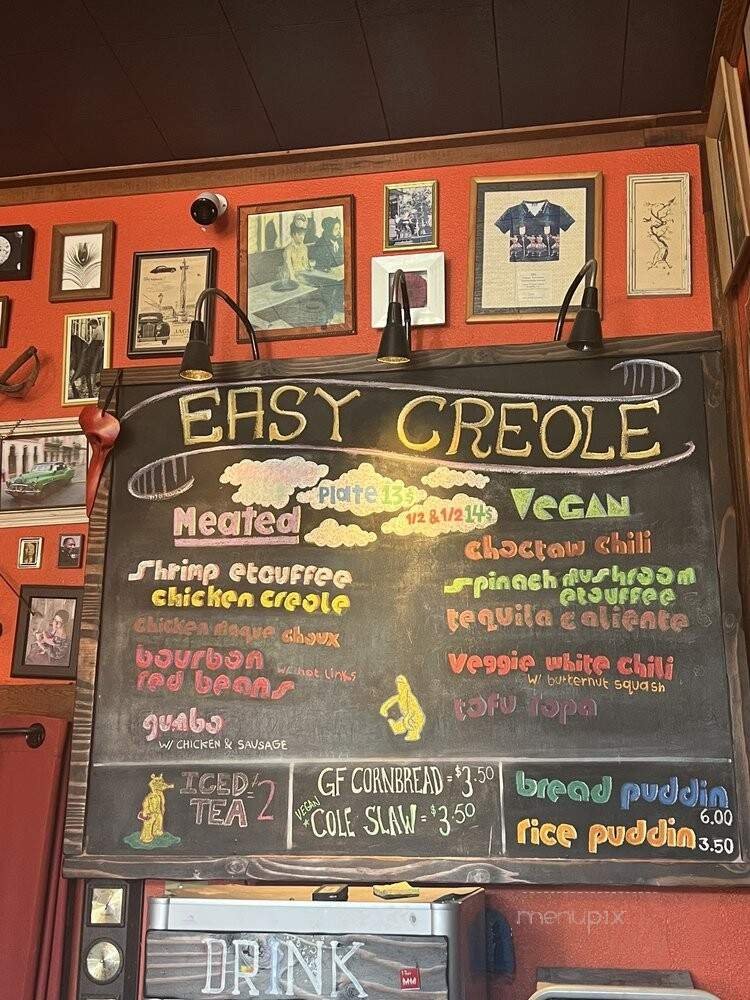 EASY CREOLE
Plate 13$
1/2 & 1/2 14$
Meated
shrimp etouffee
chicken creole
chicken maque choux
bourbon
red beans
w/ hot links
gumbo
W/ CHICKEN & SAUSAGE
VEGAN
choctaw chili
spinach mushroom
etouffee
tequila caliente
veggie white chili
W/ butternut squash
tofu ropa
ICED!
TEA 2
GF CORNBREAD = $3.50
VEGAN
COLE SLAW = $3.50
bread puddin
6.00
rice puddin 3.50
DRINK
menupix